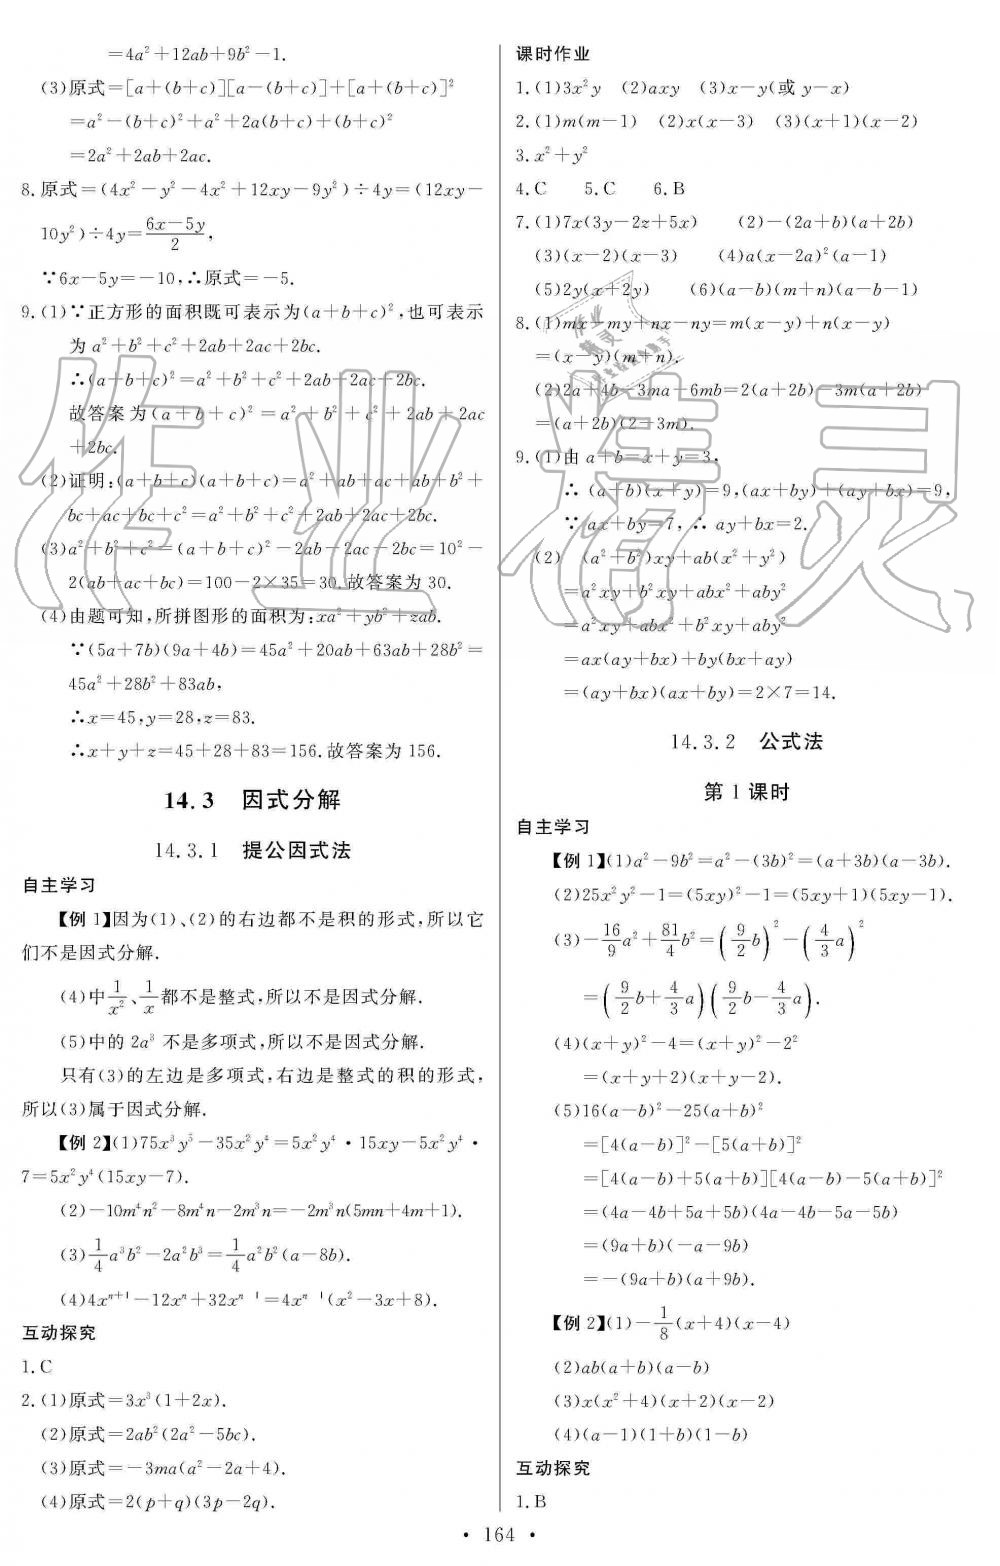 =4a²+12ab+9b²-1.
(3)原式=[a+(b+c)][a-(b+c)]+[a+(b+c)]²
=a²-(b+c)²+a²+2a(b+c)+(b+c)²
=2a²+2ab+2ac.
8.原式=(4x²-y²-4x²+12xy-9y²)÷4y=(12xy-
10y²)÷4y=(6x-5y)/2,
∵6x-5y=-10,∴原式=-5.
9.(1)∵正方形的面积既可表示为(a+b+c)²,也可表示
为a²+b²+c²+2ab+2ac+2bc.
∴(a+b+c)²=a²+b²+c²+2ab+2ac+2bc.
故答案为(a+b+c)²=a²+b²+c²+2ab+2ac
+2bc.
(2)证明:(a+b+c)(a+b+c)=a²+ab+ac+ab+b²+
bc+ac+bc+c²=a²+b²+c²+2ab+2ac+2bc.
(3)a²+b²+c²=(a+b+c)²-2ab-2ac-2bc=10²-
2(ab+ac+bc)=100-2×35=30.故答案为30.
(4)由题可知,所拼图形的面积为:xa²+yb²+zab.
∵(5a+7b)(9a+4b)=45a²+20ab+63ab+28b²=
45a²+28b²+83ab,
∴x=45,y=28,z=83.
∴x+y+z=45+28+83=156.故答案为156.
14.3 因式分解
14.3.1 提公因式法
自主学习
【例1】因为(1)、(2)的右边都不是积的形式,所以它
们不是因式分解.
(4)中1/x²、1/x都不是整式,所以不是因式分解.
(5)中的2a³不是多项式,所以不是因式分解.
只有(3)的左边是多项式,右边是整式的积的形式,
所以(3)属于因式分解.
【例2】(1)75x³y⁵-35x²y⁴=5x²y⁴·15xy-5x²y⁴·
7=5x²y⁴(15xy-7).
(2)-10m⁴n²-8m⁴n-2m³n=-2m³n(5mn+4m+1).
(3)1/4a³b²-2a²b³=1/4a²b²(a-8b).
(4)4xⁿ⁺¹-12xⁿ+32xⁿ⁻¹=4xⁿ⁻¹(x²-3x+8).
互动探究
1.C
2.(1)原式=3x³(1+2x).
(2)原式=2ab²(2a²-5bc).
(3)原式=-3ma(a²-2a+4).
(4)原式=2(p+q)(3p-2q).
课时作业
1.(1)3x²y (2)axy (3)x-y(或y-x)
2.(1)m(m-1) (2)x(x-3) (3)(x+1)(x-2)
3.x²+y²
4.C 5.C 6.B
7.(1)7x(3y-2z+5x) (2)-(2a+b)(a+2b)
(3)(x-2)(x-3) (4)a(x-2a)²(a-1)
(5)2y(x+2y) (6)(a-b)(m+n)(a-b-1)
8.(1)mx-my+nx-ny=m(x-y)+n(x-y)
=(x-y)(m+n).
(2)2a+4b-3ma-6mb=2(a+2b)-3m(a+2b)
=(a+2b)(2-3m).
9.(1)由a+b=x+y=3,
∴(a+b)(x+y)=9,(ax+by)+(ay+bx)=9,
∵ax+by=7,∴ay+bx=2.
(2) (a²+b²)xy+ab(x²+y²)
=a²xy+b²xy+abx²+aby²
=a²xy+abx²+b²xy+aby²
=ax(ay+bx)+by(bx+ay)
=(ay+bx)(ax+by)=2×7=14.
14.3.2 公式法
第1课时
自主学习
【例1】(1)a²-9b²=a²-(3b)²=(a+3b)(a-3b).
(2)25x²y²-1=(5xy)²-1=(5xy+1)(5xy-1).
(3)-16/9a²+81/4b²=(9/2b)²-(4/3a)²
=(9/2b+4/3a)(9/2b-4/3a).
(4)(x+y)²-4=(x+y)²-2²
=(x+y+2)(x+y-2).
(5)16(a-b)²-25(a+b)²
=[4(a-b)]²-[5(a+b)]²
=[4(a-b)+5(a+b)][4(a-b)-5(a+b)]²
=(4a-4b+5a+5b)(4a-4b-5a-5b)
=(9a+b)(-a-9b)
=-(9a+b)(a+9b).
【例2】(1)-1/8(x+4)(x-4)
(2)ab(a+b)(a-b)
(3)x(x²+4)(x+2)(x-2)
(4)(a-1)(1+b)(1-b)
互动探究
1.B
·164·
作业精灵